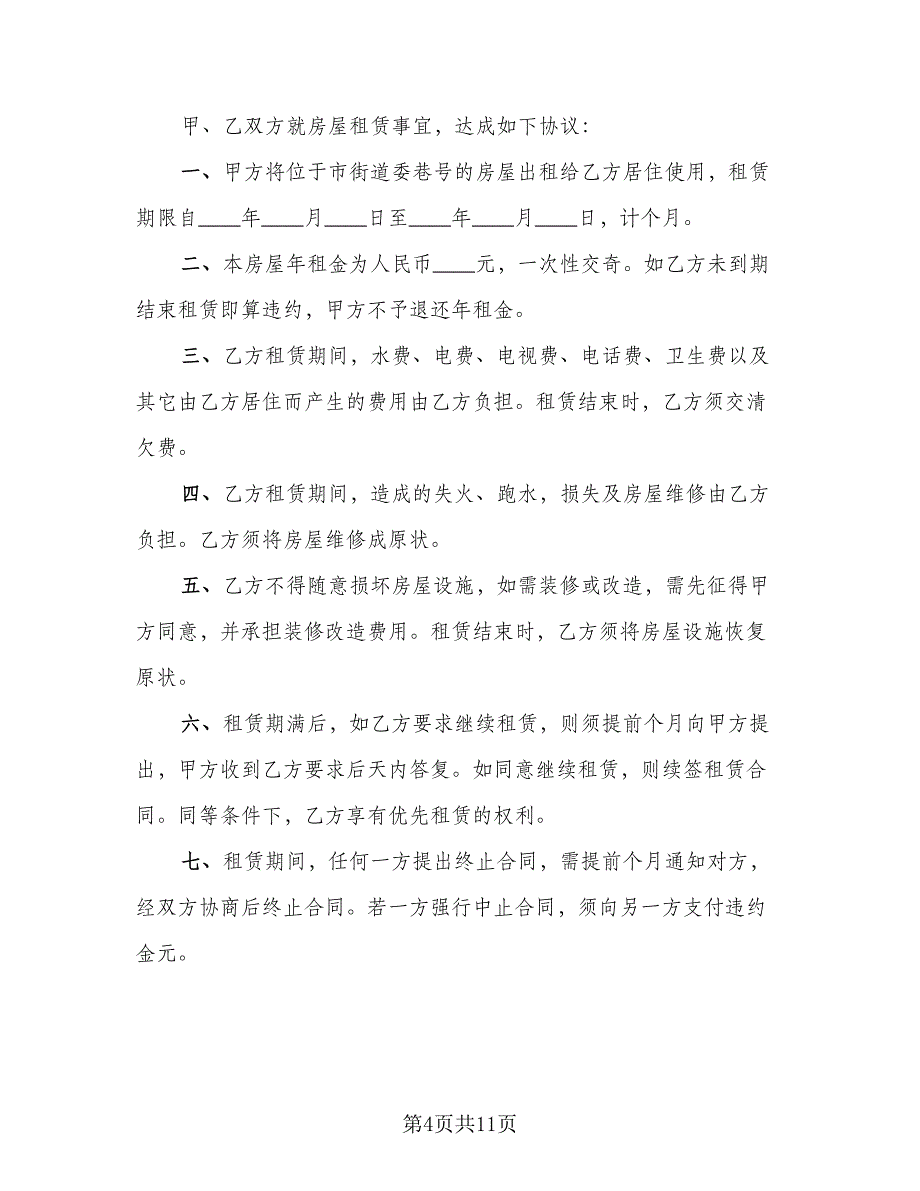 甲、乙双方就房屋租赁事宜，达成如下协议：
一、甲方将位于市街道委巷号的房屋出租给乙方居住使用，租赁
期限自____年____月____日至____年____月____日，计个月。
二、本房屋年租金为人民币____元，一次性交奇。如乙方未到期
结束租赁即算违约，甲方不予退还年租金。
三、乙方租赁期间，水费、电费、电视费、电话费、卫生费以及
其它由乙方居住而产生的费用由乙方负担。租赁结束时，乙方须交清
欠费。
四、乙方租赁期间，造成的失火、跑水，损失及房屋维修由乙方
负担。乙方须将房屋维修成原状。
五、乙方不得随意损坏房屋设施，如需装修或改造，需先征得甲
方同意，并承担装修改造费用。租赁结束时，乙方须将房屋设施恢复
原状。
六、租赁期满后，如乙方要求继续租赁，则须提前个月向甲方提
出，甲方收到乙方要求后天内答复。如同意继续租赁，则续签租赁合
同。同等条件下，乙方享有优先租赁的权利。
七、租赁期间，任何一方提出终止合同，需提前个月通知对方，
经双方协商后终止合同。若一方强行中止合同，须向另一方支付违约
金元。
第4页共11页